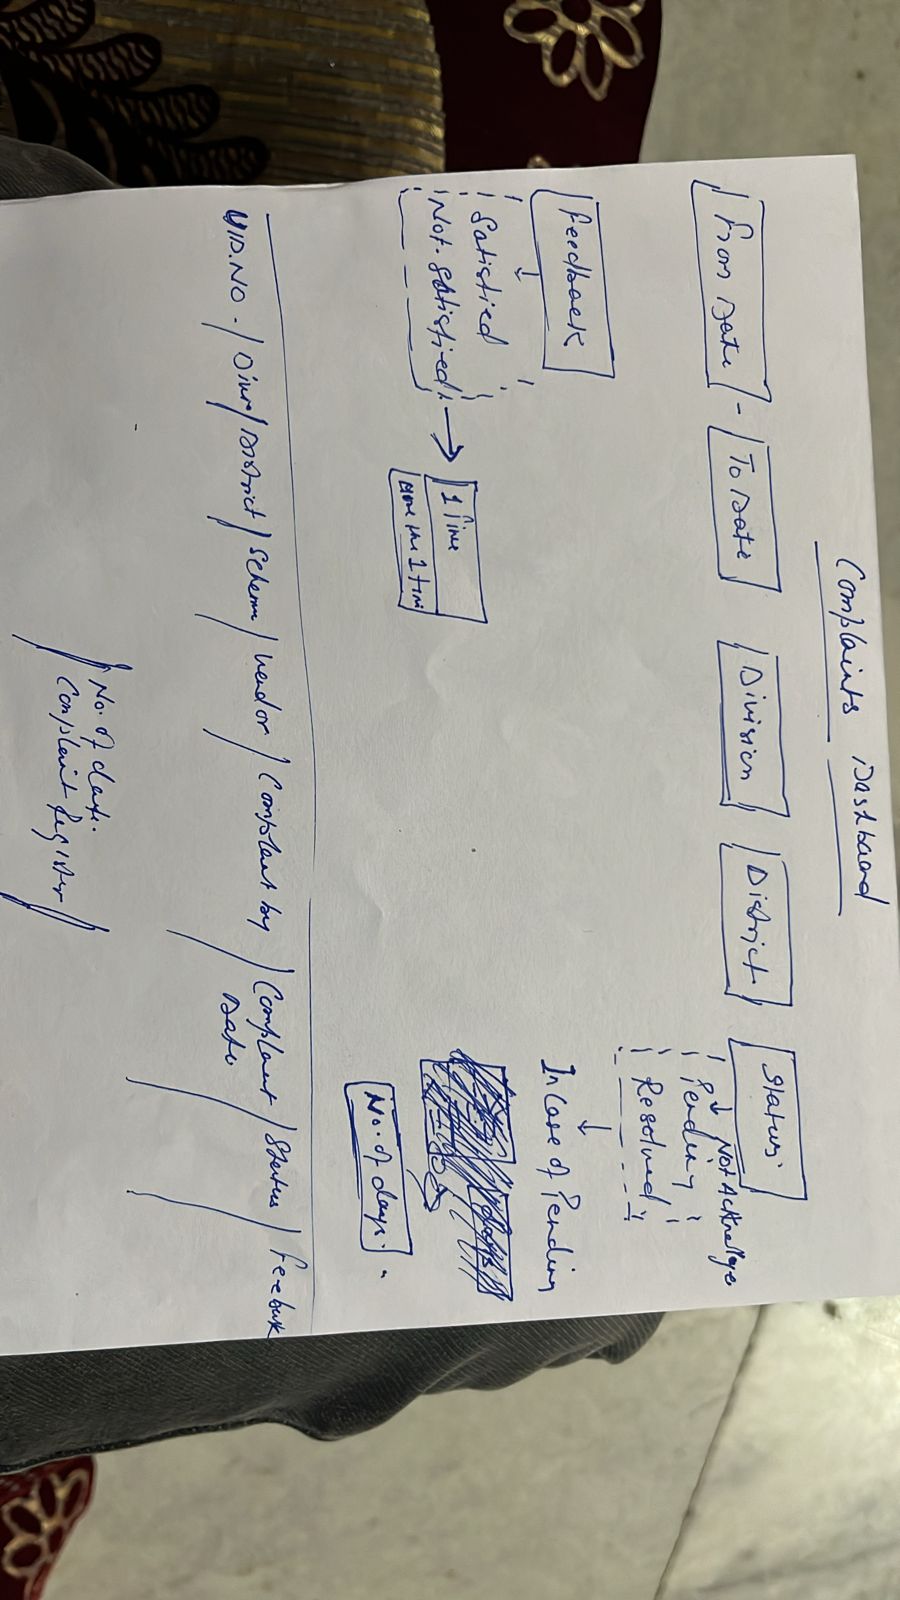 Complaints Dashboard
From Date - To Date Division District Status.
Not Acknowledge
Pending
Resolved
In Case of Pending
No. of days.
Feedback
Satisfied
Not. Satisfied
1 Time
more the 1 time
UID.NO. / District / Scheme / Vendor / Complaint by / Complaint Date / Status /
No. of
Complaint Register